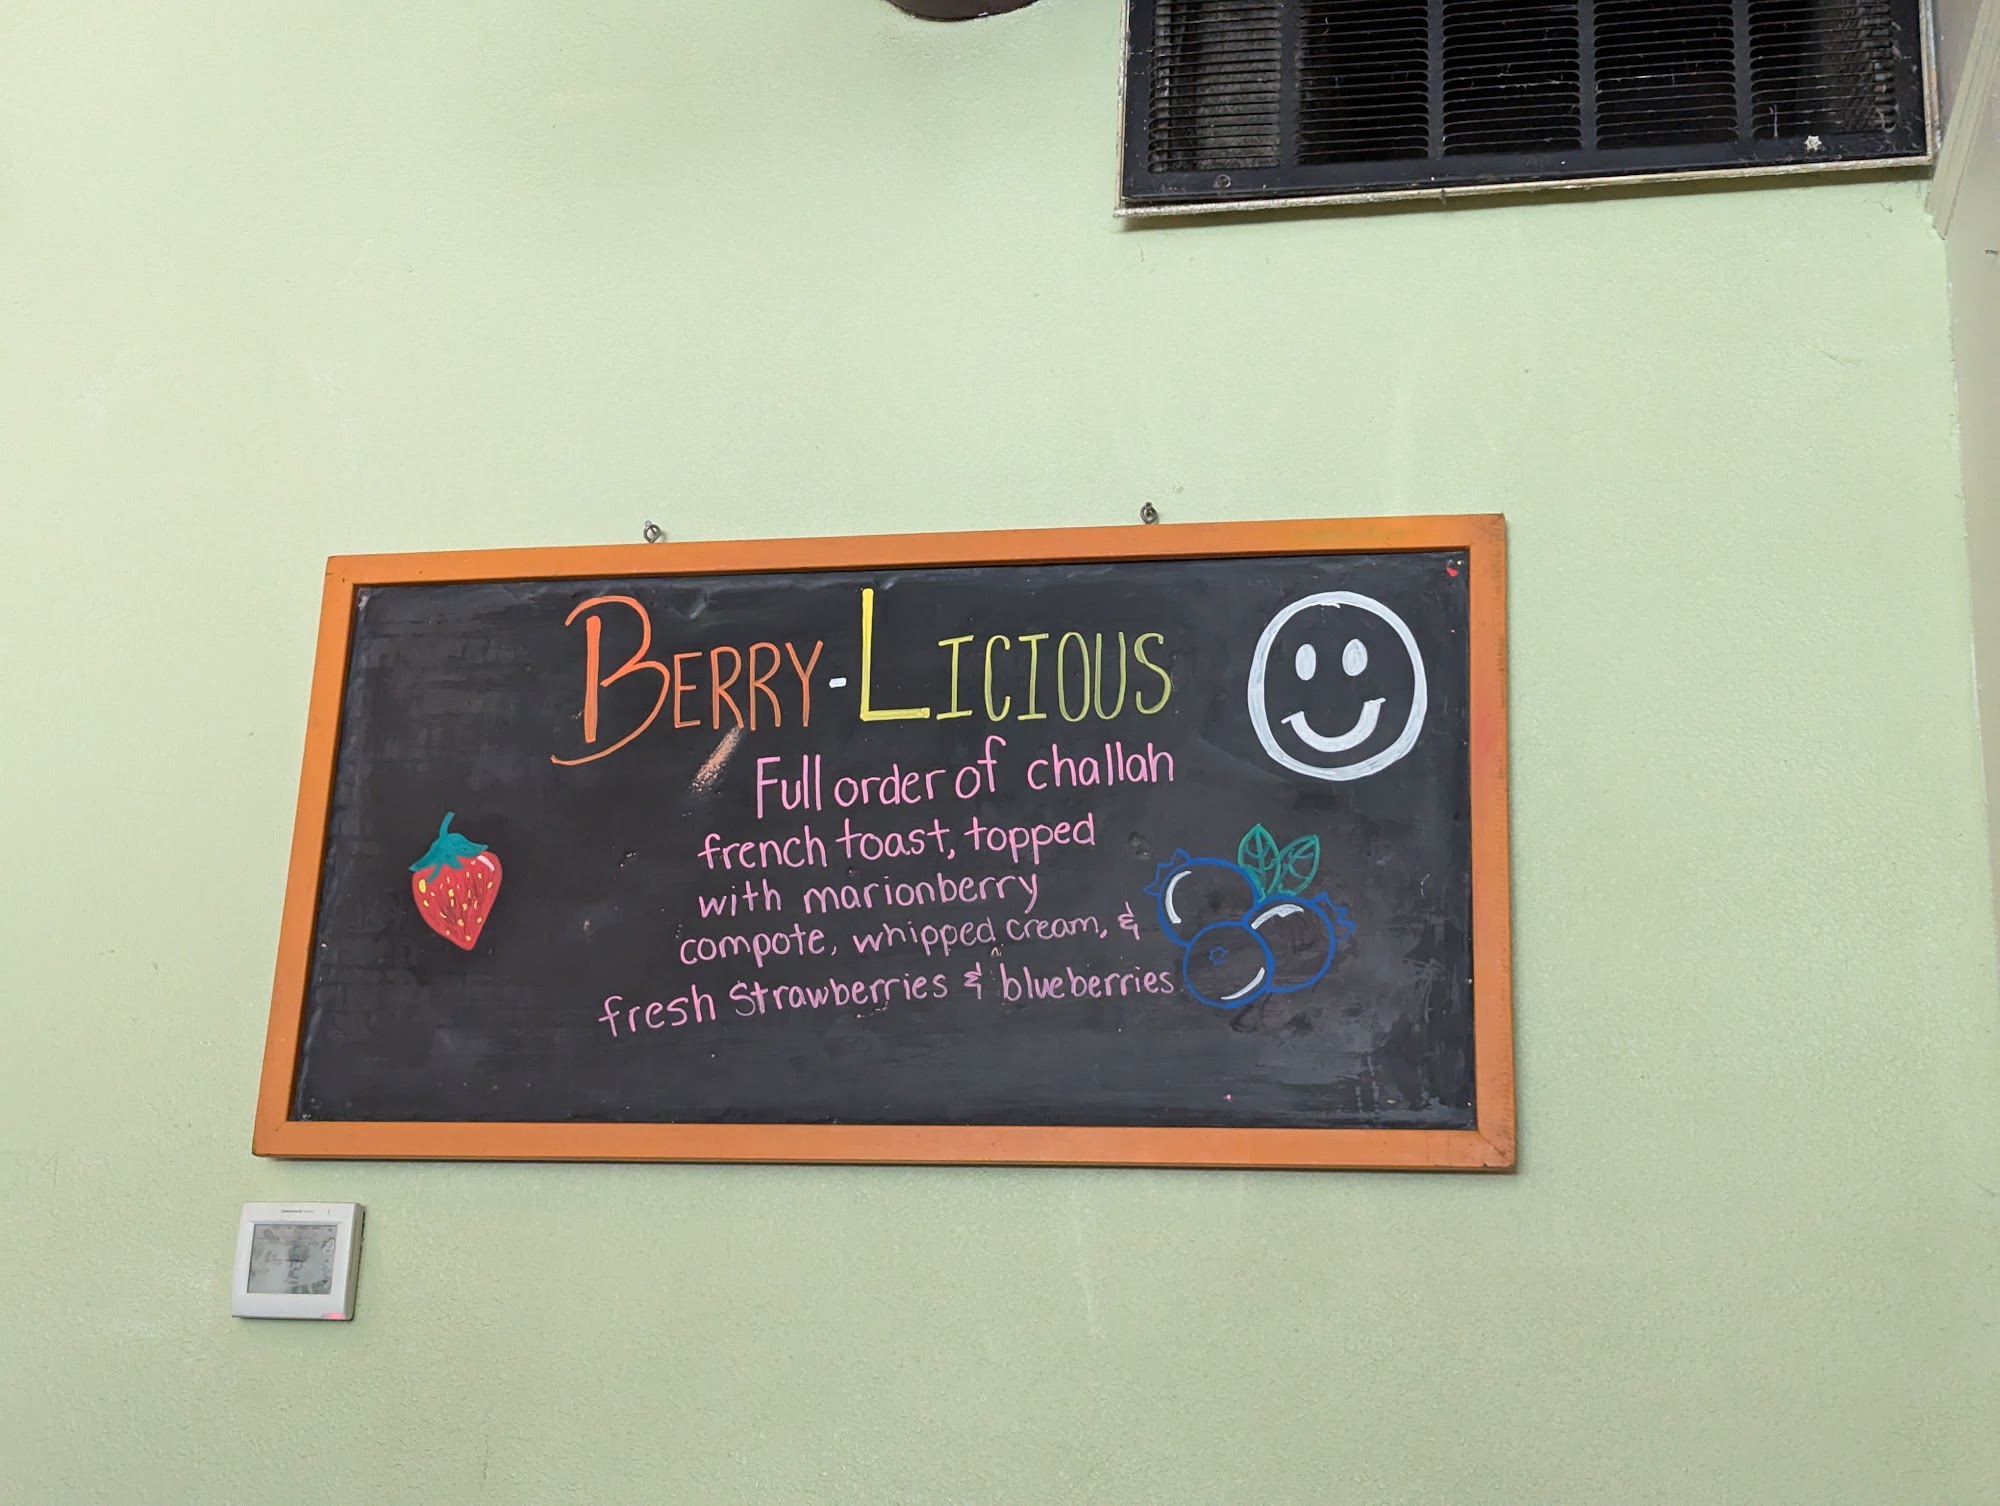 BERRY-LICIOUS
Full order of challah
french toast, topped
with marionberry
compote, whipped cream, &
fresh strawberries & blueberries